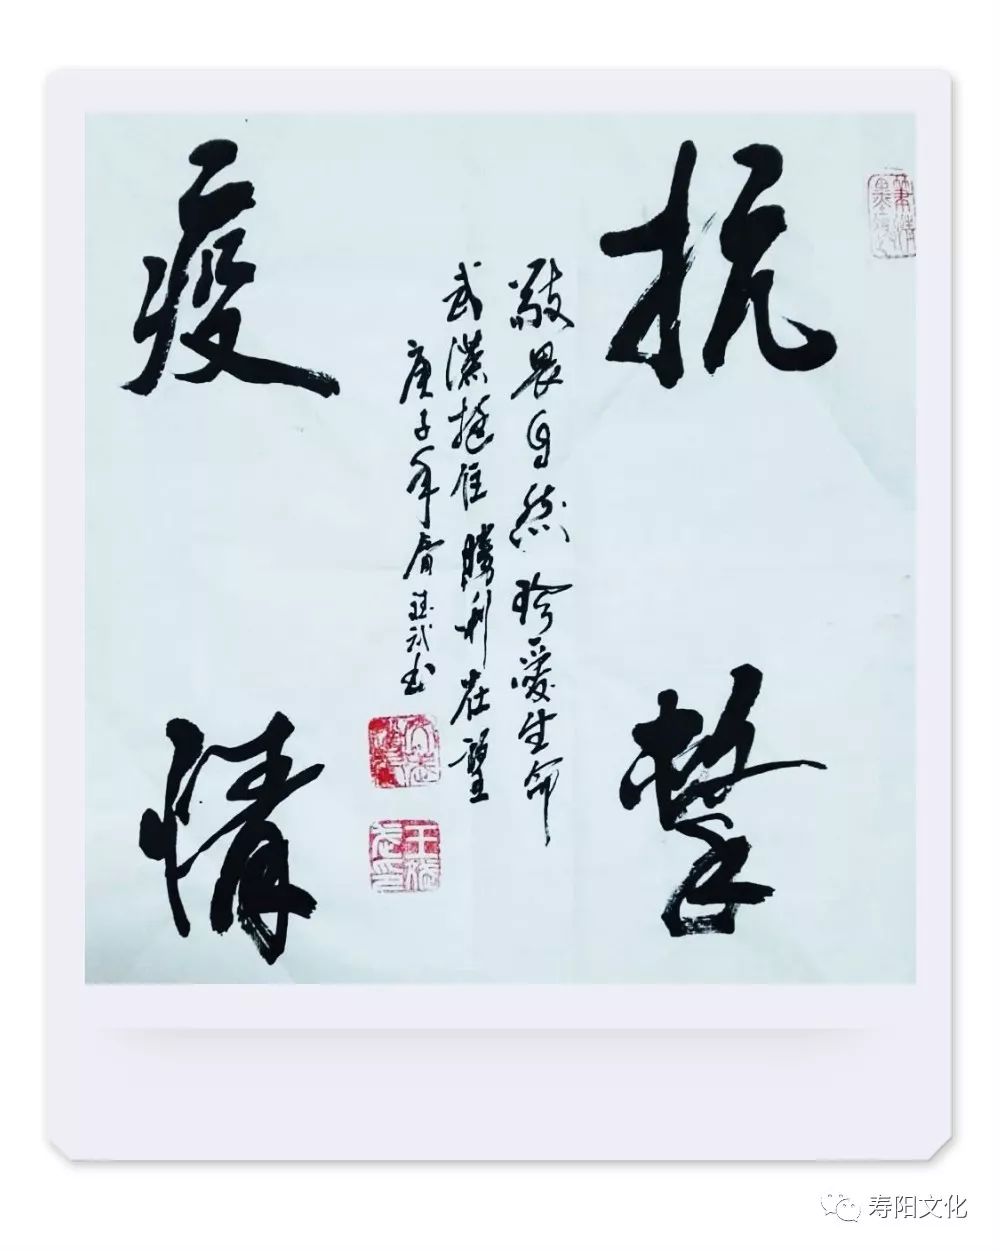 抗擊
疫情
敬畏自然珍愛生命
武漢挺住勝利在望
庚子年春武书
寿阳文化